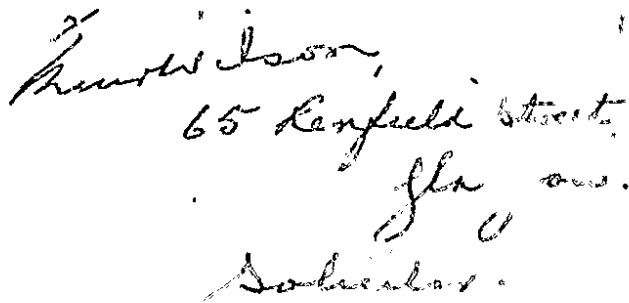 Wilson,
65 Renfield Street
Glasgow.
Solicitor.